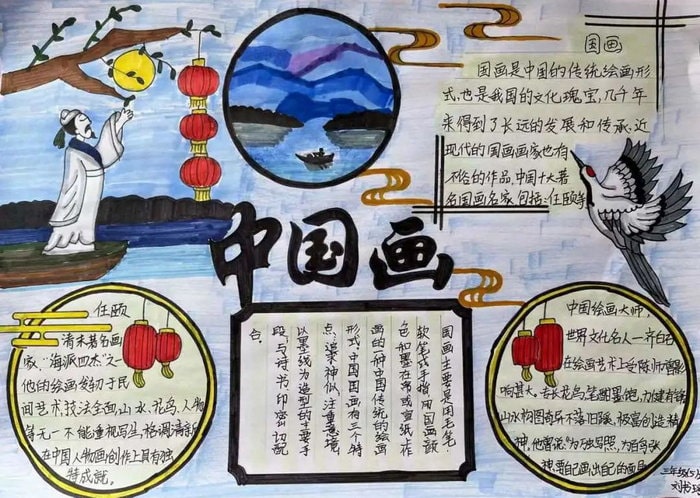 国画
国画是中国的传统绘画形
式,也是我国的文化瑰宝,几千年
来得到了长远的发展和传承,近
现代的国画画家也有
不俗的作品,中国十大著
名国画名家,包括:任颐等
中国画
任颐
清末著名画
家、“海派四杰”之一
他的绘画发轫于民
间艺术,技法全面,山水、花鸟、人物
等无一不能,重视写生,格调清新
在中国人物画创作上具有独
特成就。
国画主要是用毛笔
软笔或手指,用国画颜
色和墨在帛或宣纸上作
画的一种中国传统的绘画
形式,中国国画有三个特
点,追求神似,注重意境
以墨线为造型的主要手
段,与诗、书、印密切结
合。
中国绘画大师,
世界文化名人—齐白石
在绘画艺术上受陈师曾影
响甚大,专长花鸟,笔酣墨饱,力健有锋
山水构图奇异不落旧蹊,极富创造精
神,他曾说“为万虫写照,为百鸟张
神,要自己画出自己的面目
三年级(5)
刘书